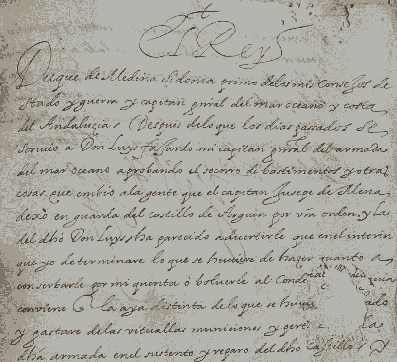 El Rey
Duque de Medina Sidonia primo de los mis Consejos de
estado y guerra y capitan gnral del mar oceano y costa
del Andaluzia. Despues de lo que los dias passados se
scrivio a Don Luys fassardo mi capitan gnral del armada
del mar oceano aprobando el socorro de bastimentos y otras
cosas que embio a la gente que el capitan Jusepe de Mena
dexo en guarda del castillo de Arguin por vra orden, y la
del dho Don Luys ha parecido advertirle que en el interin
que yo determinare lo que se huviere de hazer quanto a
conserbarle por mi quenta o bolverle al Conde
conviene la aya distinta de lo que se
y gastare de las vituallas municiones y la
dha armada en el sustento y reparo del dho Castillo y